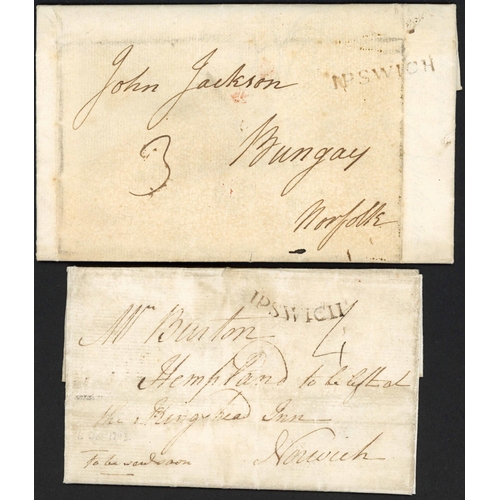 John Jackson
IPSWICH
3
Bungay
Norfolk
IPSWICH
Mr Burton
4
Hempland to be left at
the Inn
Norwich
To be sent soon